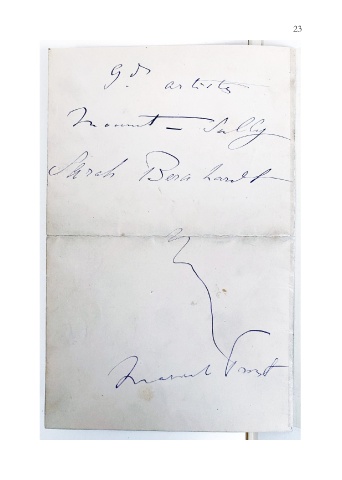 23
gds artistes
Mounet - Sully
Sarah Bernhardt
Marcel Proust